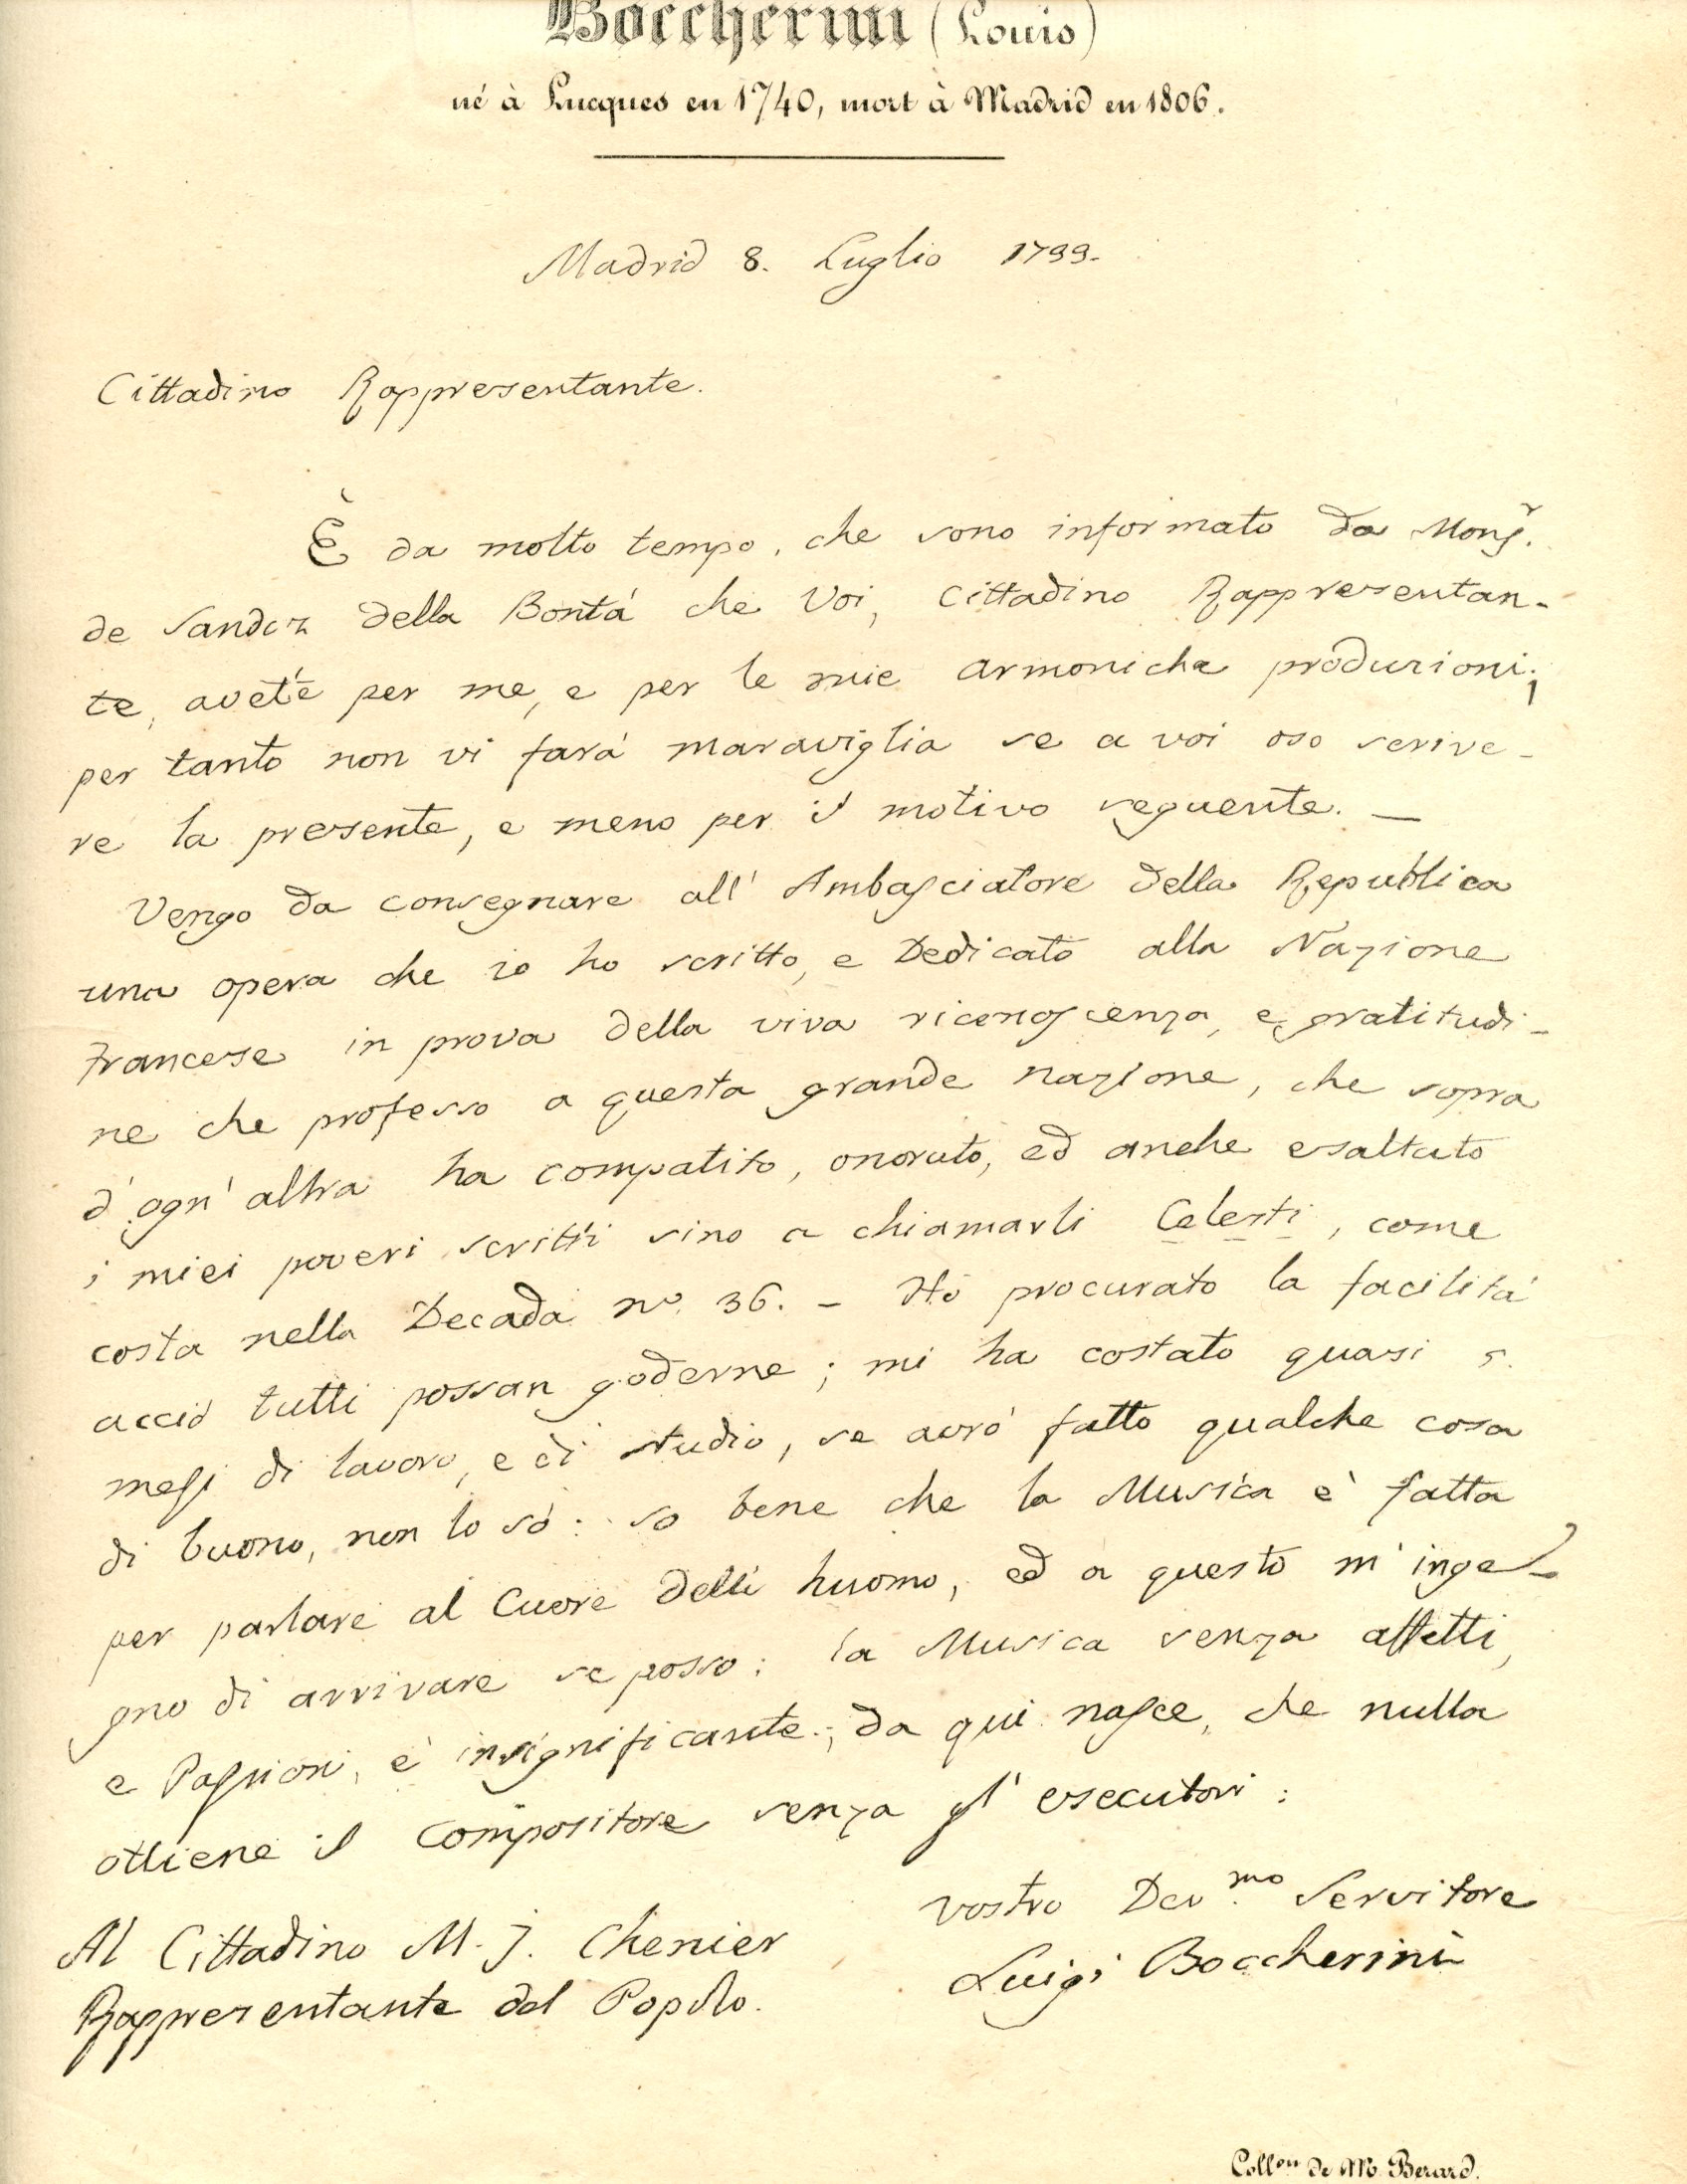 Boccherini (Louis)
né à Lucques en 1740, mort à Madrid en 1806.
Madrid 8. Luglio 1799.
Cittadino Rappresentante.
È da molto tempo, che sono informato da Monsr.
de Sandoz della Bontá che Voi, Cittadino Rappresentan-
te, avete per me, e per le mie armoniche produzioni;
per tanto non vi fará maraviglia se a voi oso scrive-
re la presente, e meno per il motivo seguente. —
Vengo da consegnare all' Ambasciatore della Republica
una opera che io ho scritto, e Dedicato alla Nazione
Francese in prova della viva riconoscenza, e gratitudi-
ne che professo a questa grande nazione, che sopra
d'ogn' altra ha compatito, onorato, ed anche esaltato
i miei poveri scritti sino a chiamarli Celesti, come
costa nella Decada no. 36. - Hó procurato la facilitá
acció tutti possan goderne; mi ha costato quasi 5.
mesi di lavoro, e di studio, se avró fatto qualche cosa
di buono, non lo só: so bene che la Musica è fatta
per parlare al Cuore delli huomo, ed a questo m'inge-
gno di arrivare se posso: la Musica senza affetti,
e Passioni, è insignificante; da qui nasce, che nulla
ottiene il compositore senza gl' esecutori:
vostro Dev.mo Servitore
Luigi Boccherini
Al Cittadino M. J. Chenier
Rappresentante del Popolo.
Collon de Mr. Berard.